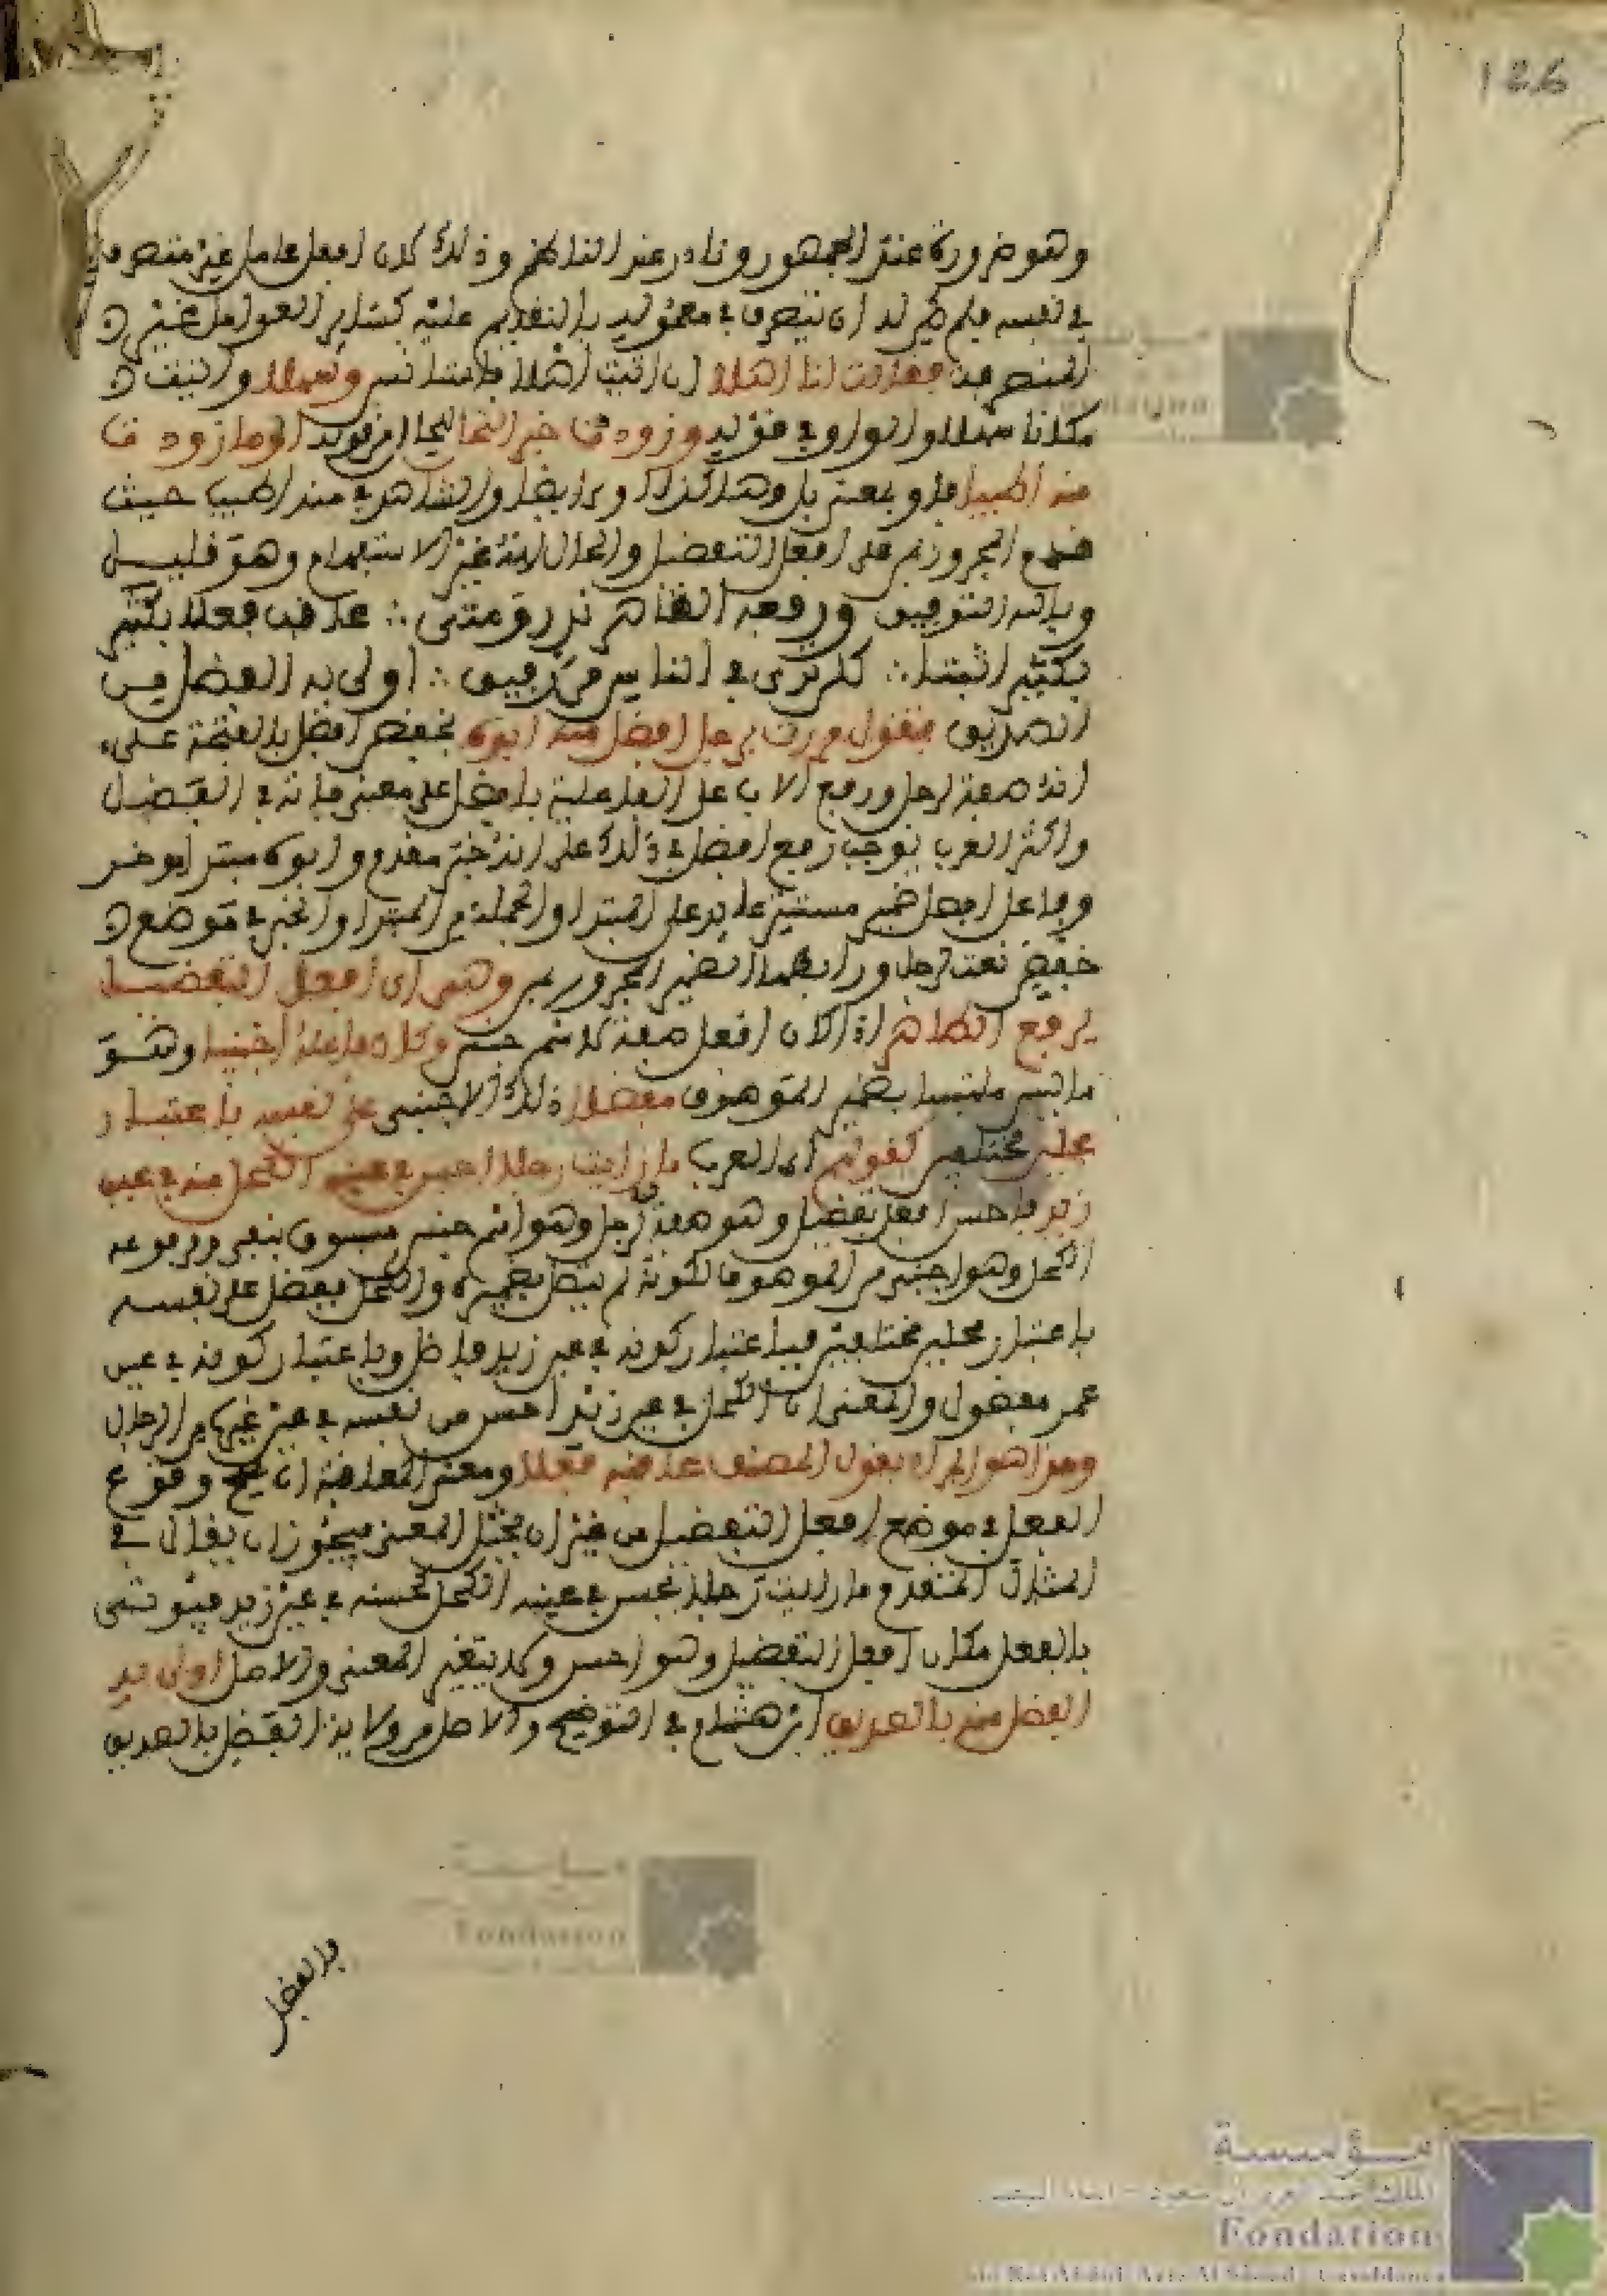 126
وهو ضرورة عند الجمهور ونادر عند الناظم وذلك لان افعل عامل غير متصرف
في نفسه فلم يكن له ان يتصرف في معموله بالتقديم عليه كسائر العوامل غير
المتصرفة فقالت لنا اهلا اي اتيت اهلا فاستانس وسهلا واتيت
مكانا سهلا والواو في قوله وزودت جنى النحل اما من قوله او ما زودت
منه اطيب فاو بمعنى بل وهذا كذلك ايضا والشاهد في منه اطيب حيث
قدم المجرور بمن على افعل التفضيل والحال انه غير الاستفهام وهو قليل
وبالله التوفيق ورفعه الظاهر نزر ومتى ∴ عاقب فعلا بكثير
فكثيرا ثبتا ∴ كلن ترى في الناس من رفيق ∴ اولى به الفضل من
الصديق فتقول مررت برجل افضل منه ابوه بخفض افضل بالفتحة على
انه صفة لرجل ورفع الاب على الفاعلية بافضل على معنى فاقه في الفضل
واكثر العرب يوجب رفع افضل في ذلك على انه خبر مقدم وابوه مبتدا موخر
وفاعل افعل ضمير مستتر عايد على المبتدا والجملة من المبتدا والخبر في موضع
خفض نعت لرجل ورابطها الضمير المجرور بمن وهو اي افعل التفضيل
يرفع الظاهر اذا كان افعل صفة لاسم جنس وكان فاعله اجنبيا وهو
ما ليس ملتبسا بضمير الموصوف مفضلا ذلك الاجنبي على نفسه باعتبار
محلين مختلفين كقولهم اي العرب ما رايت رجلا احسن في عينه الكحل منه في عين
زيد فاحسن افعل تفضيل وهو صفة لرجل وهو اسم جنس مسبوق بنفي ومرفوعه
الكحل وهو اجنبي من الموصوف لكونه لم يتصل بضميره والكحل مفضل على نفسه
باعتبار محلين مختلفين فباعتبار كونه في عين زيد فاضل وباعتبار كونه في عين
عمر مفضول والمعنى ان الكحل في عين زيد احسن من نفسه في عين غيره من الرجال
وهذا هو المراد بقول المصنف عاقب فعلا ومعنى المعاقبة ان يصح وقوع
الفعل في موضع افعل التفضيل من غير ان يختل المعنى فيجوز ان يقال في
المثال المتقدم ما رايت رجلا يحسن في عينه الكحل كحسنه في عين زيد فيوتى
بالفعل مكان افعل التفضيل وهو احسن ولا يتغير المعنى والاصل اولى به
الفضل منه بالصديق ابن هشام في التوضيح والاصل من ولاية الفضل بالصديق
فالفضل
مؤسسة
Fondation